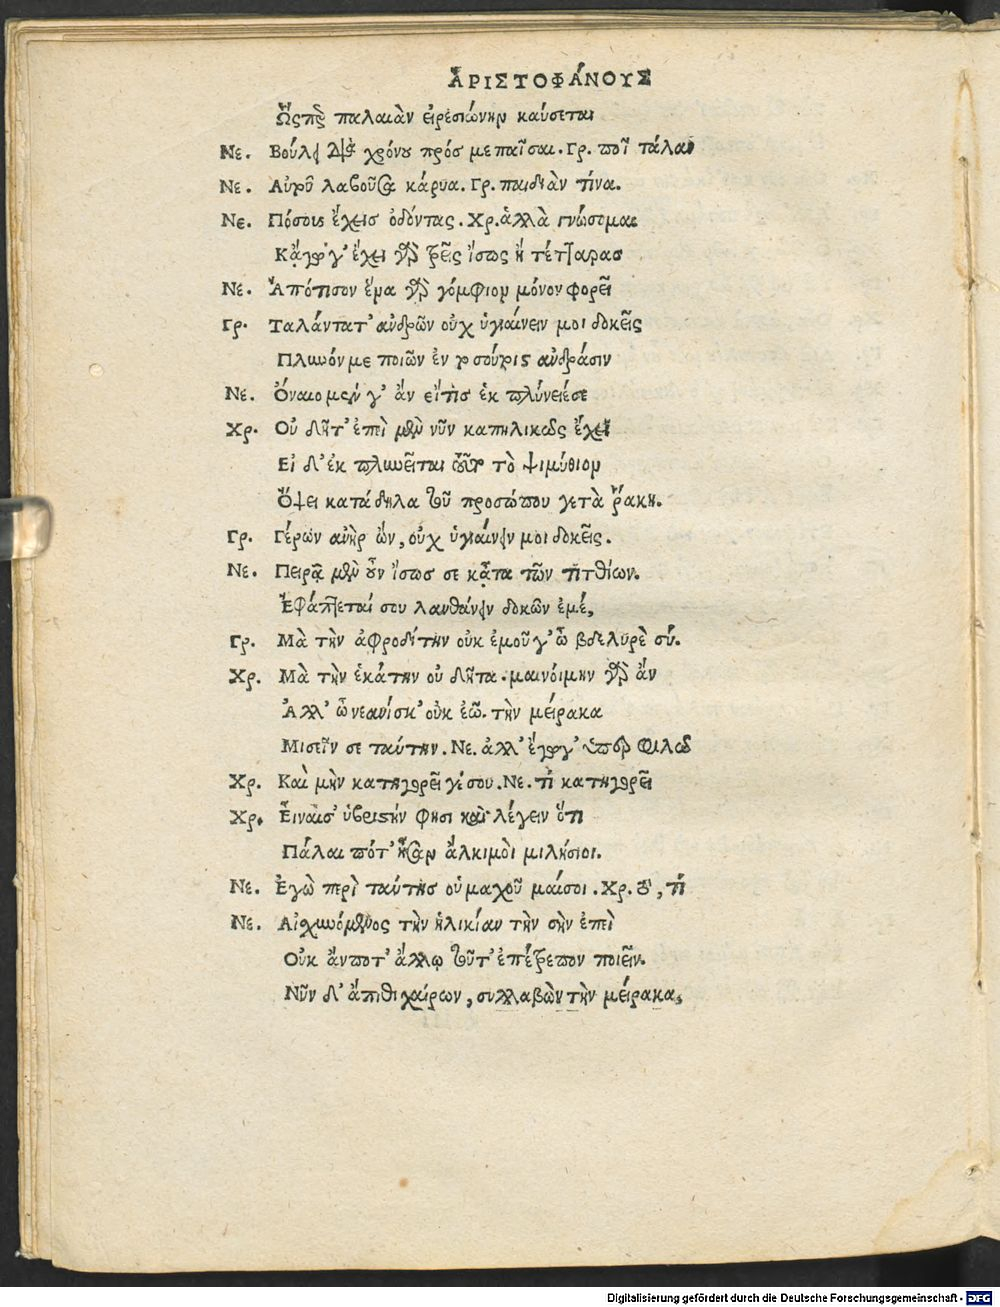 ἈΡΙΣΤΟΦΆΝΟΥΣ
Ὥςπερ παλαιὰν εἰρεσιώνην καύσεται
Νε. Βούλει διὰ χρόνου πρός με παῖσαι. Γρ. ποῖ τάλαν
Νε. Αὐτοῦ λαβοῦσα κάρυα. Γρ. παιδιὰν τίνα.
Νε. Πόσους ἔχεισ ὀδόντας. Χρ. ἀλλὰ γνώσομαι
Κἄγωγ' ἔχει γὰρ τρεῖς ἴσως ἢ τέτταρασ
Νε. Ἀπότισον ἕνα γὰρ γόμφιον μόνον φορεῖ
Γρ. Ταλάντατ' ἀνδρῶν οὐχ ὑγιαίνειν μοι δοκεῖς
Πλυνόν με ποιῶν ἐν τοσούτοις ἀνδράσιν
Νε. Ὄναιο μέν γ' ἄν εἴτισ ἐκ πλύνειέσε
Χρ. Οὐ δῆτ' ἐπεὶ μὲν νῦν καπηλικῶς ἔχει
Εἰ δ' ἐκ πλυνεῖται τοῦτο τὸ ψιμύθιον
Ὄψει κατάδηλα τοῦ προσώπου γετὰ ῥάκη.
Γρ. Γέρων ἀνὴρ ὤν, οὐχ ὑγιαίνειν μοι δοκεῖς.
Νε. Πειρᾷ μὲν οὖν ἴσωσ σε κᾆτα τῶν τιτθίων.
Ἐφάπτεταί σου λανθάνειν δοκῶν ἐμέ,
Γρ. Μὰ τὴν ἀφροδίτην οὐκ ἐμοῦ γ' ὦ βδελυρὲ σύ.
Χρ. Μὰ τὴν ἑκάτην οὐ δῆτα. μαινόιμην γὰρ ἄν
Ἀλλ' ὦ νεανίσκ' οὐκ ἐῶ. τὴν μείρακα
Μισεῖν σε ταύτην. Νε. ἀλλ' ἔγωγ' ὑπερ φιλῶ
Χρ. Καὶ μὴν κατηγορεῖ γέ σου. Νε. τί κατηγορεῖ
Χρ. Εἶναισ' ὑβριστήν φησι καὶ λέγειν ὅτι
Πάλαι πότ' ἦσαν ἄλκιμοὶ μιλήσιοι.
Νε. Ἐγὼ περὶ ταύτησ οὐ μαχοῦ μαίσοι. Χρ. τὸ, τί
Νε. Αἰσχυνόμενος τὴν ἡλικίαν τὴν σὴν ἐπεὶ
Οὐκ ἄνποτ' ἄλλῳ τοῦτ' ἐπέτρεπον ποιεῖν.
Νῦν δ' ἄπιθι χαίρων, συλλαβὼν τὴν μείρακα,
Digitalisierung gefördert durch die Deutsche Forschungsgemeinschaft - DFG